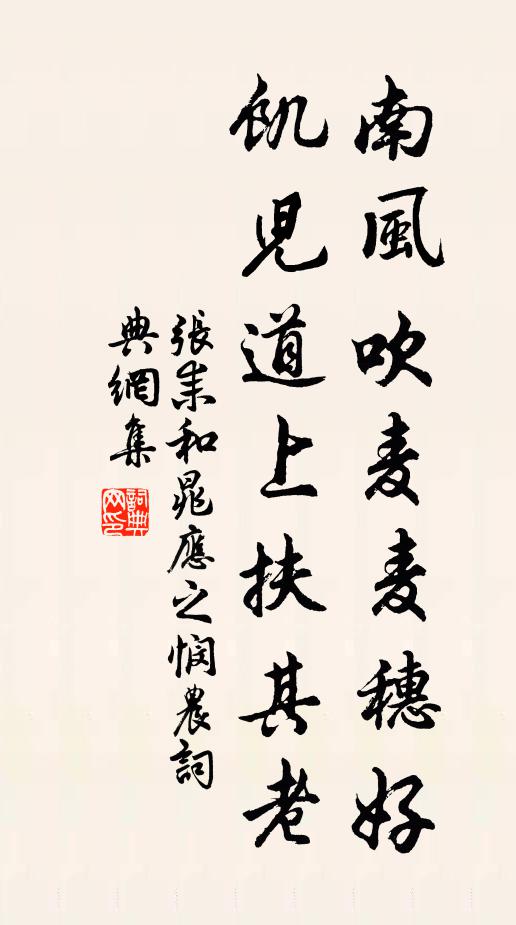 南風吹麦麦穗好
飢児道上扶其老
張耒和晁應之憫農詞
典網集
詞典网印